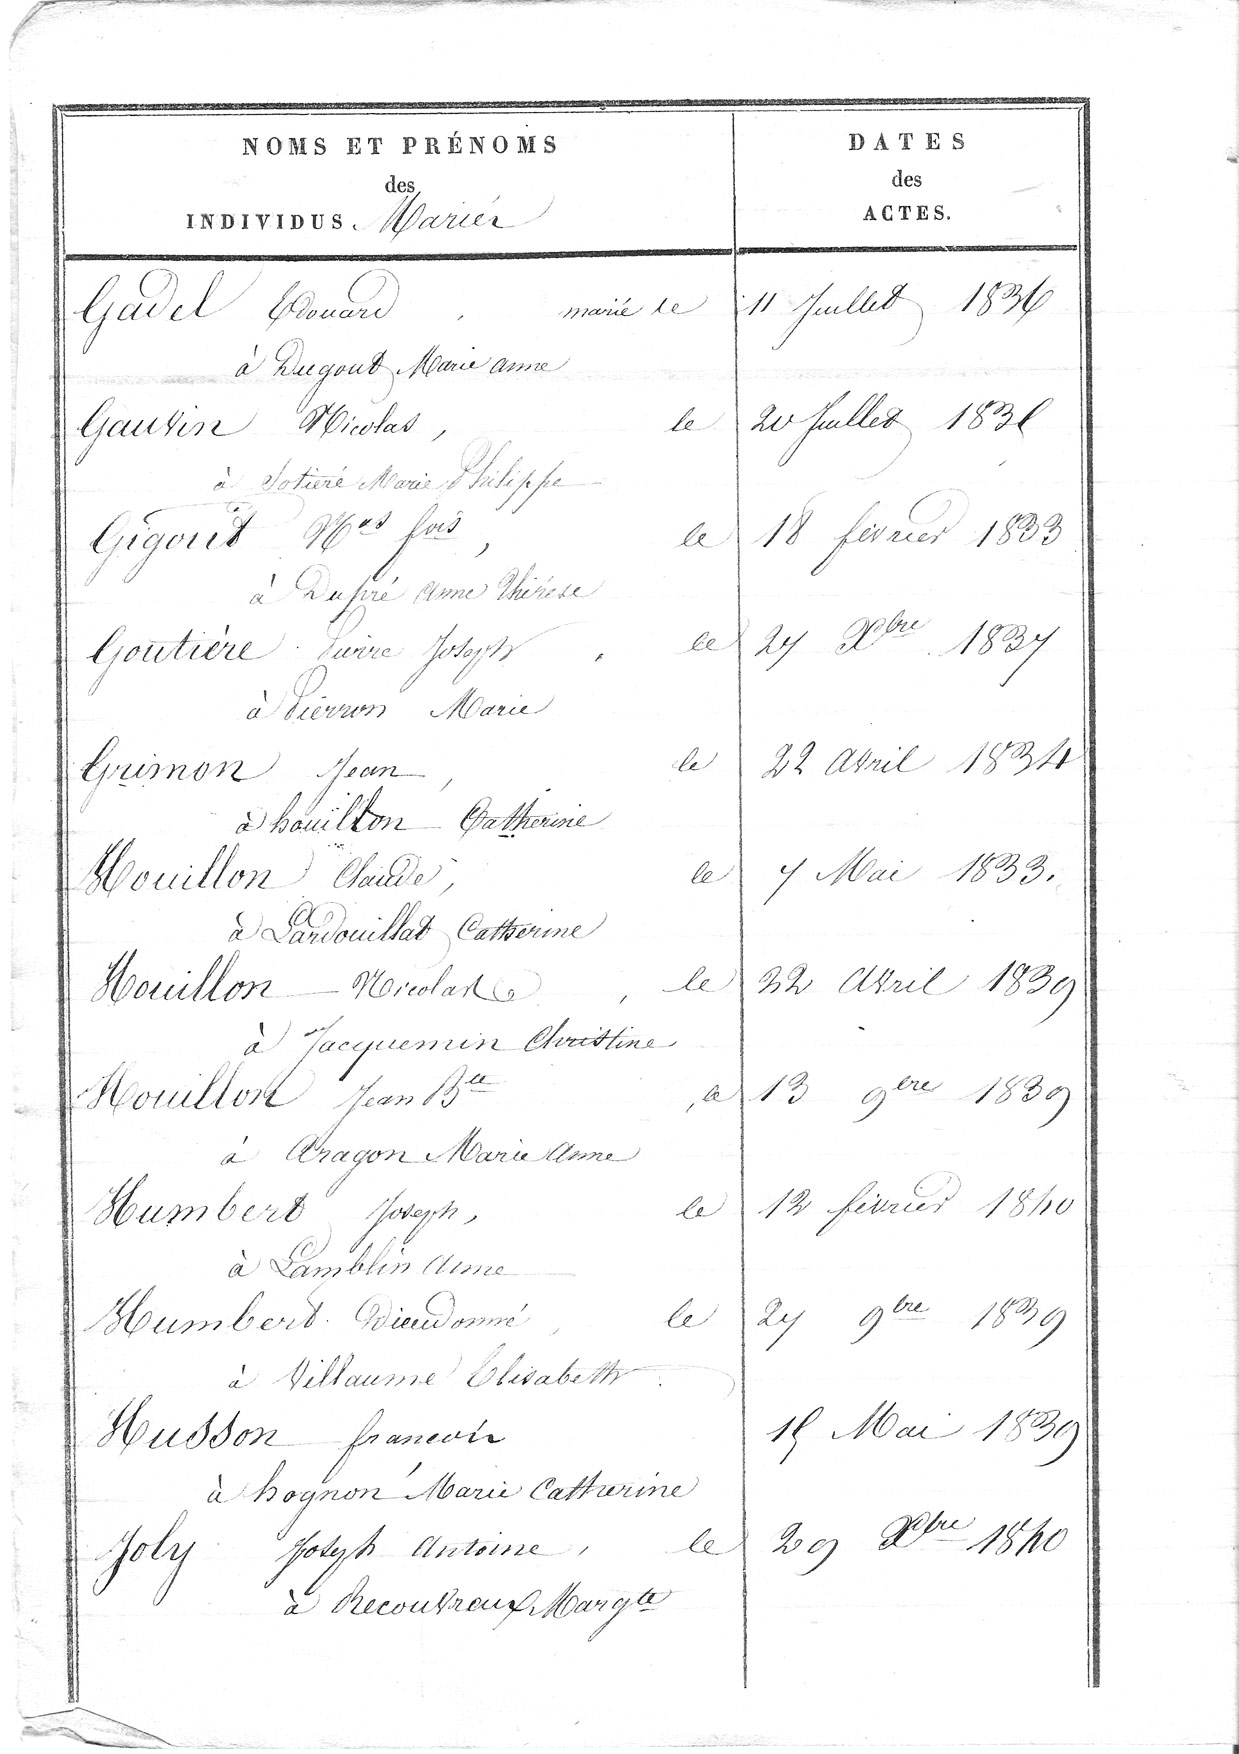 NOMS ET PRÉNOMS
des
INDIVIDUS. Mariés
DATES
des
ACTES.
Gadel Edouard , marié le 11 Juillet 1836
à Dugout Marie anne
Gauvin Nicolas , le 20 Juillet 1831
à Sotieré Marie Philippe
Gigout Nas fois , le 18 février 1833
à Dupré anne Thérèse
Goutière Pierre Joseph , le 27 Xbre 1837
à Pierron Marie
Grimon Jean , le 22 avril 1834
à houillon Catherine
Houillon Claude , le 7 Mai 1833.
à Lardouillat Catherine
Houillon Nicolas , le 22 avril 1839
à Jacquemin Christine
Houillon Jean Bte , le 13 9bre 1839
à aragon Marie anne
Humbert Joseph , le 12 février 1840
à Lamblin anne
Humbert Dieudonné , le 27 9bre 1839
à Villaume Elisabeth
Husson francois 15 Mai 1839
à hognon Marie Catherine
Joly Joseph antoine , le 29 Xbre 1840
à Recouvreux Margte